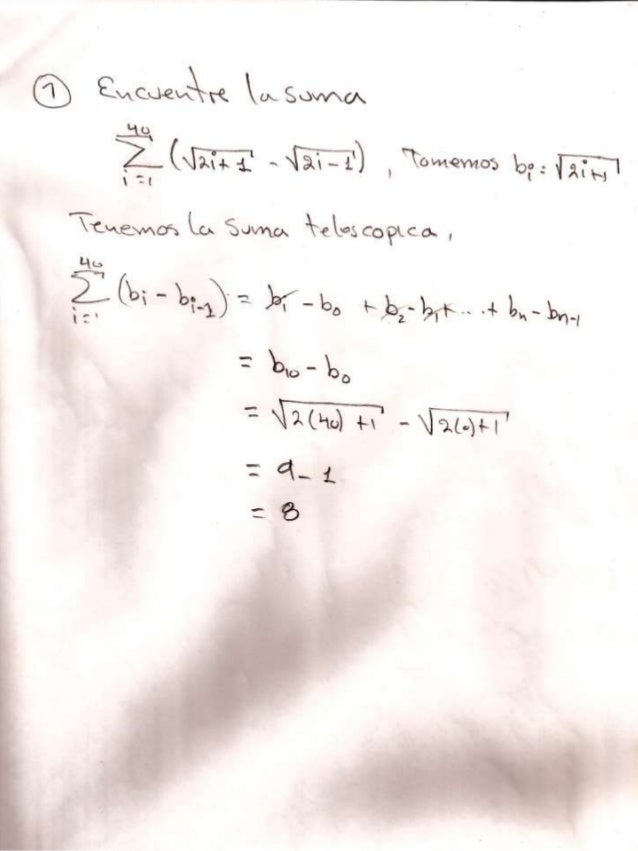 ① Encuentre la suma
40
∑ (√2i+1 - √2i-1) , Tomemos bᵢ = √2i+1
i=1
Tenemos la suma telescopica,
40
∑ (bᵢ - bᵢ₋₁) = b₁ - b₀ + b₂ - b₁ + ... + bₙ - bₙ₋₁
i=1
= b₁₀ - b₀
= √2(40) +1 - √2(0)+1
= 9 - 1
= 8